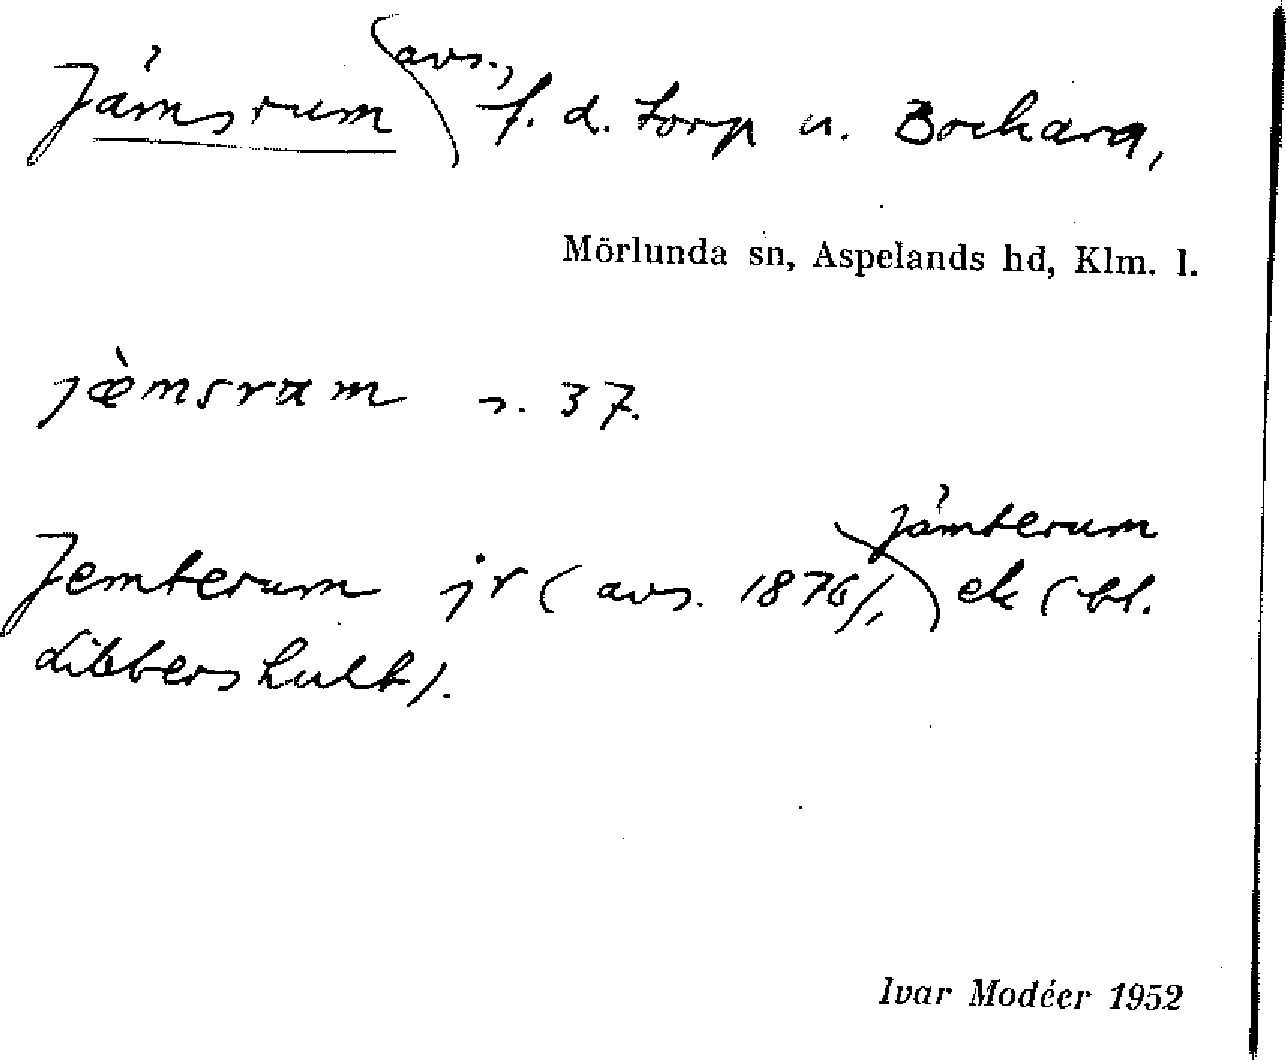 Jämsrum avs., f. d. torp u. Bockara,
Mörlunda sn, Aspelands hd, Klm. l.
jæ̀msram s. 37.
Jemterum jr (avs. 1876), Jämterum ek (bl.
Libbershult).
Ivar Modéer 1952